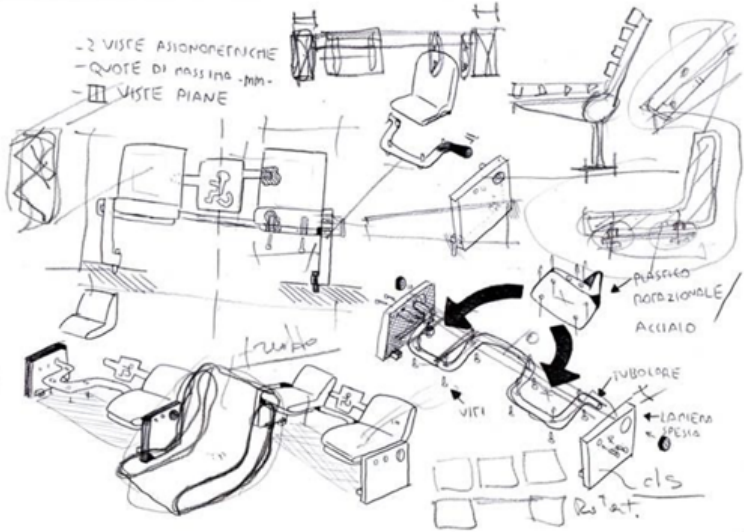 - 2 VISTE ASSONOMETRICHE
- QUOTE DI MASSIMA -MM-
- VISTE PIANE
PLASTICO
ROTAZIONALE
ACCIAIO
TUBOLARE
VITI
LAMIERA
SPESSA
cls